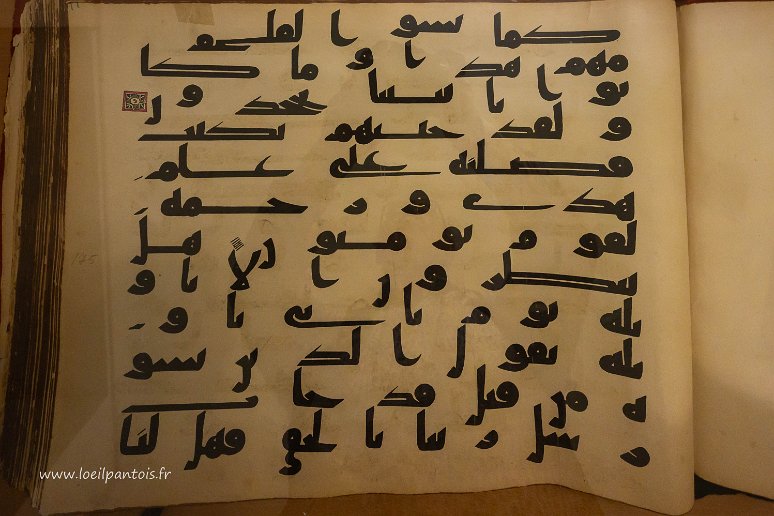 كما نسوا لقا يو
مهم هدا وما كا
نوا بايتنا يجحدون
ولقد جينهم بكتب
فصلنه على علم
هدى ورحمه
لقوم يومنون هل
ينظرون الا تاو
يله يوم ياتي تاو
يله يقول الذين نسو
ه من قبل قد جات
رسل ربنا بالحق فهل لنا
www.loeilpantois.fr